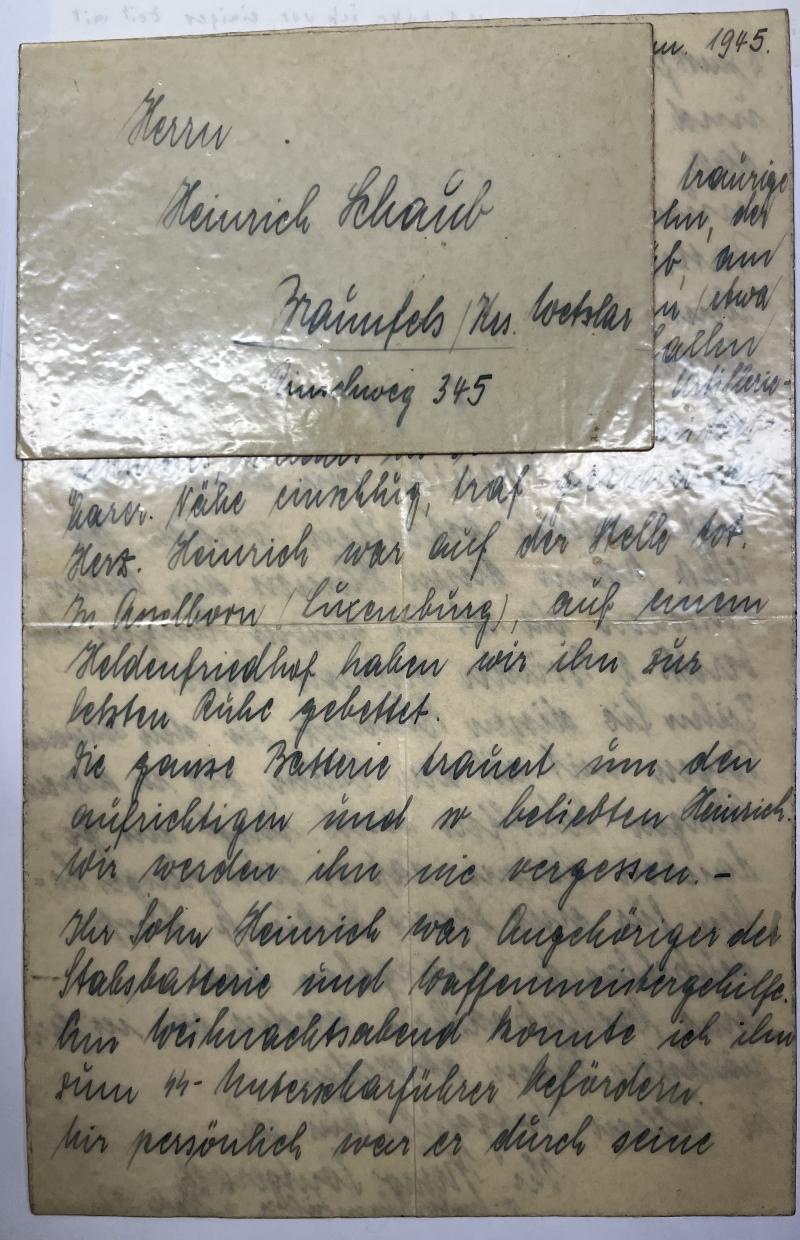 Herrn
Heinrich Schaub
Braunfels / Krs. Wetzlar
345
1945.
traurige
der
am
(etwa
Artillerie-
barer Nähe einschlug, traf
Herz. Heinrich war auf der Stelle tot.
In Asselborn (Luxemburg), auf einem
Heldenfriedhof haben wir ihn zur
letzten Ruhe gebettet.
Die ganze Batterie trauert um den
aufrichtigen und so beliebten Heinrich.
Wir werden ihn nie vergessen. –
Ihr Sohn Heinrich war Angehöriger der
Stabsbatterie und Waffenmeistergehilfe.
Am Weihnachtsabend konnte ich ihn
zum SS-Unterscharführer befördern.
Mir persönlich war er durch seine